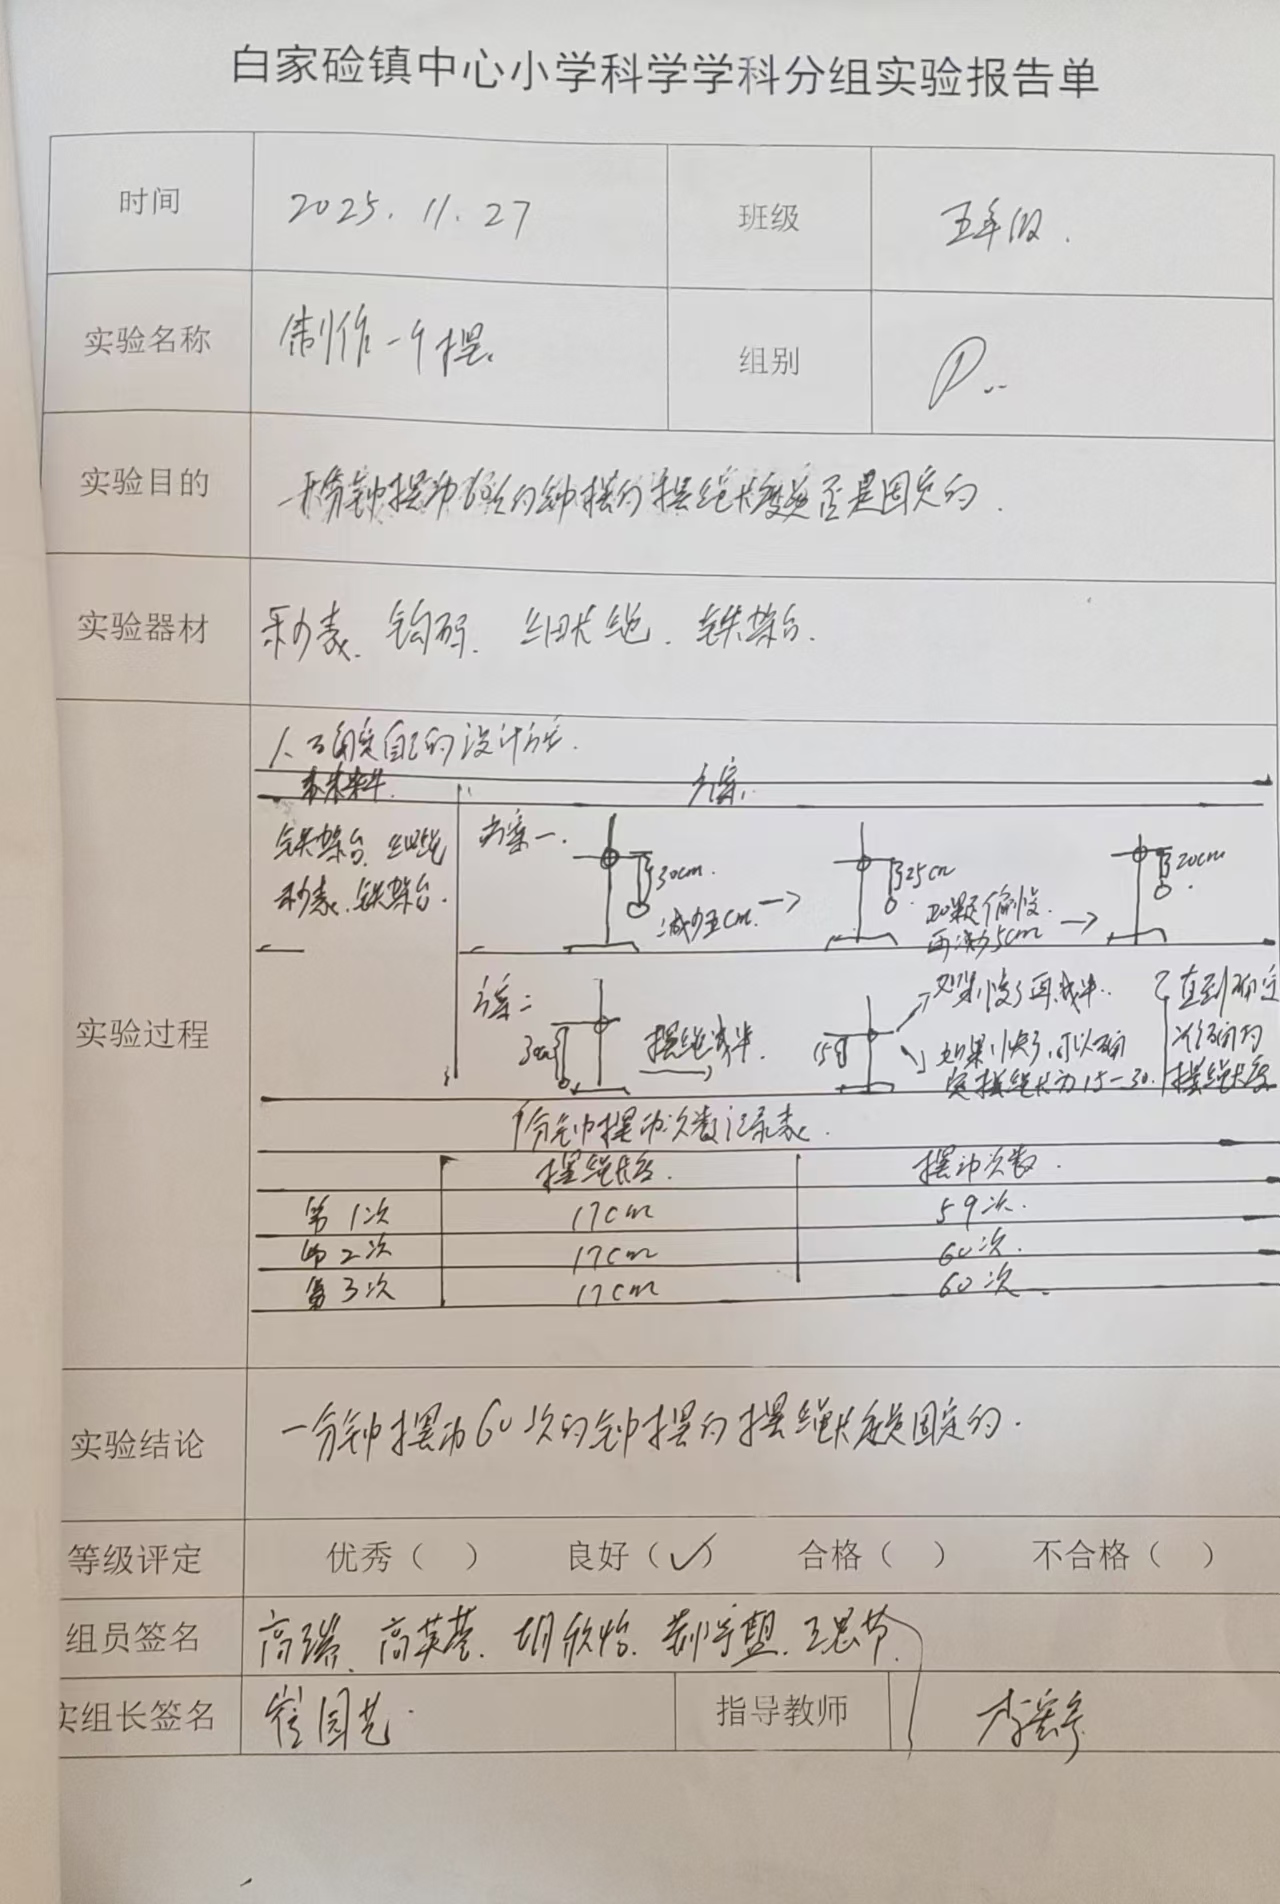 白家硷镇中心小学科学学科分组实验报告单
时间 2025.11.27 班级 五年级.
实验名称 制作一个摆. 组别
实验目的 一分钟摆动60次的钟摆的摆绳长度是否是固定的.
实验器材 秒表、钩码、细长绳、铁架台.
实验过程
1、确定自己的设计方案.
材料 方案.
铁架台、细绳 方案一. 30cm. 减少五cm. → 25cm 如果偏慢. 再减少5cm → 20cm.
秒表、铁架台.
方案二 30cm 摆绳减半. 15 如果慢了再减半.
如果快了,可以确定摆绳长为15-30.
直到确定
摆绳长度
1分钟摆动次数记录表.
摆绳长度. 摆动次数.
第1次 17cm 59次.
第2次 17cm 60次.
第3次 17cm 60次.
实验结论 一分钟摆动60次的钟摆的摆绳长度是固定的.
等级评定 优秀( ) 良好(✓) 合格( ) 不合格( )
组员签名 高瑞、高英莲、胡欣怡、
实组长签名 崔园艺. 指导教师